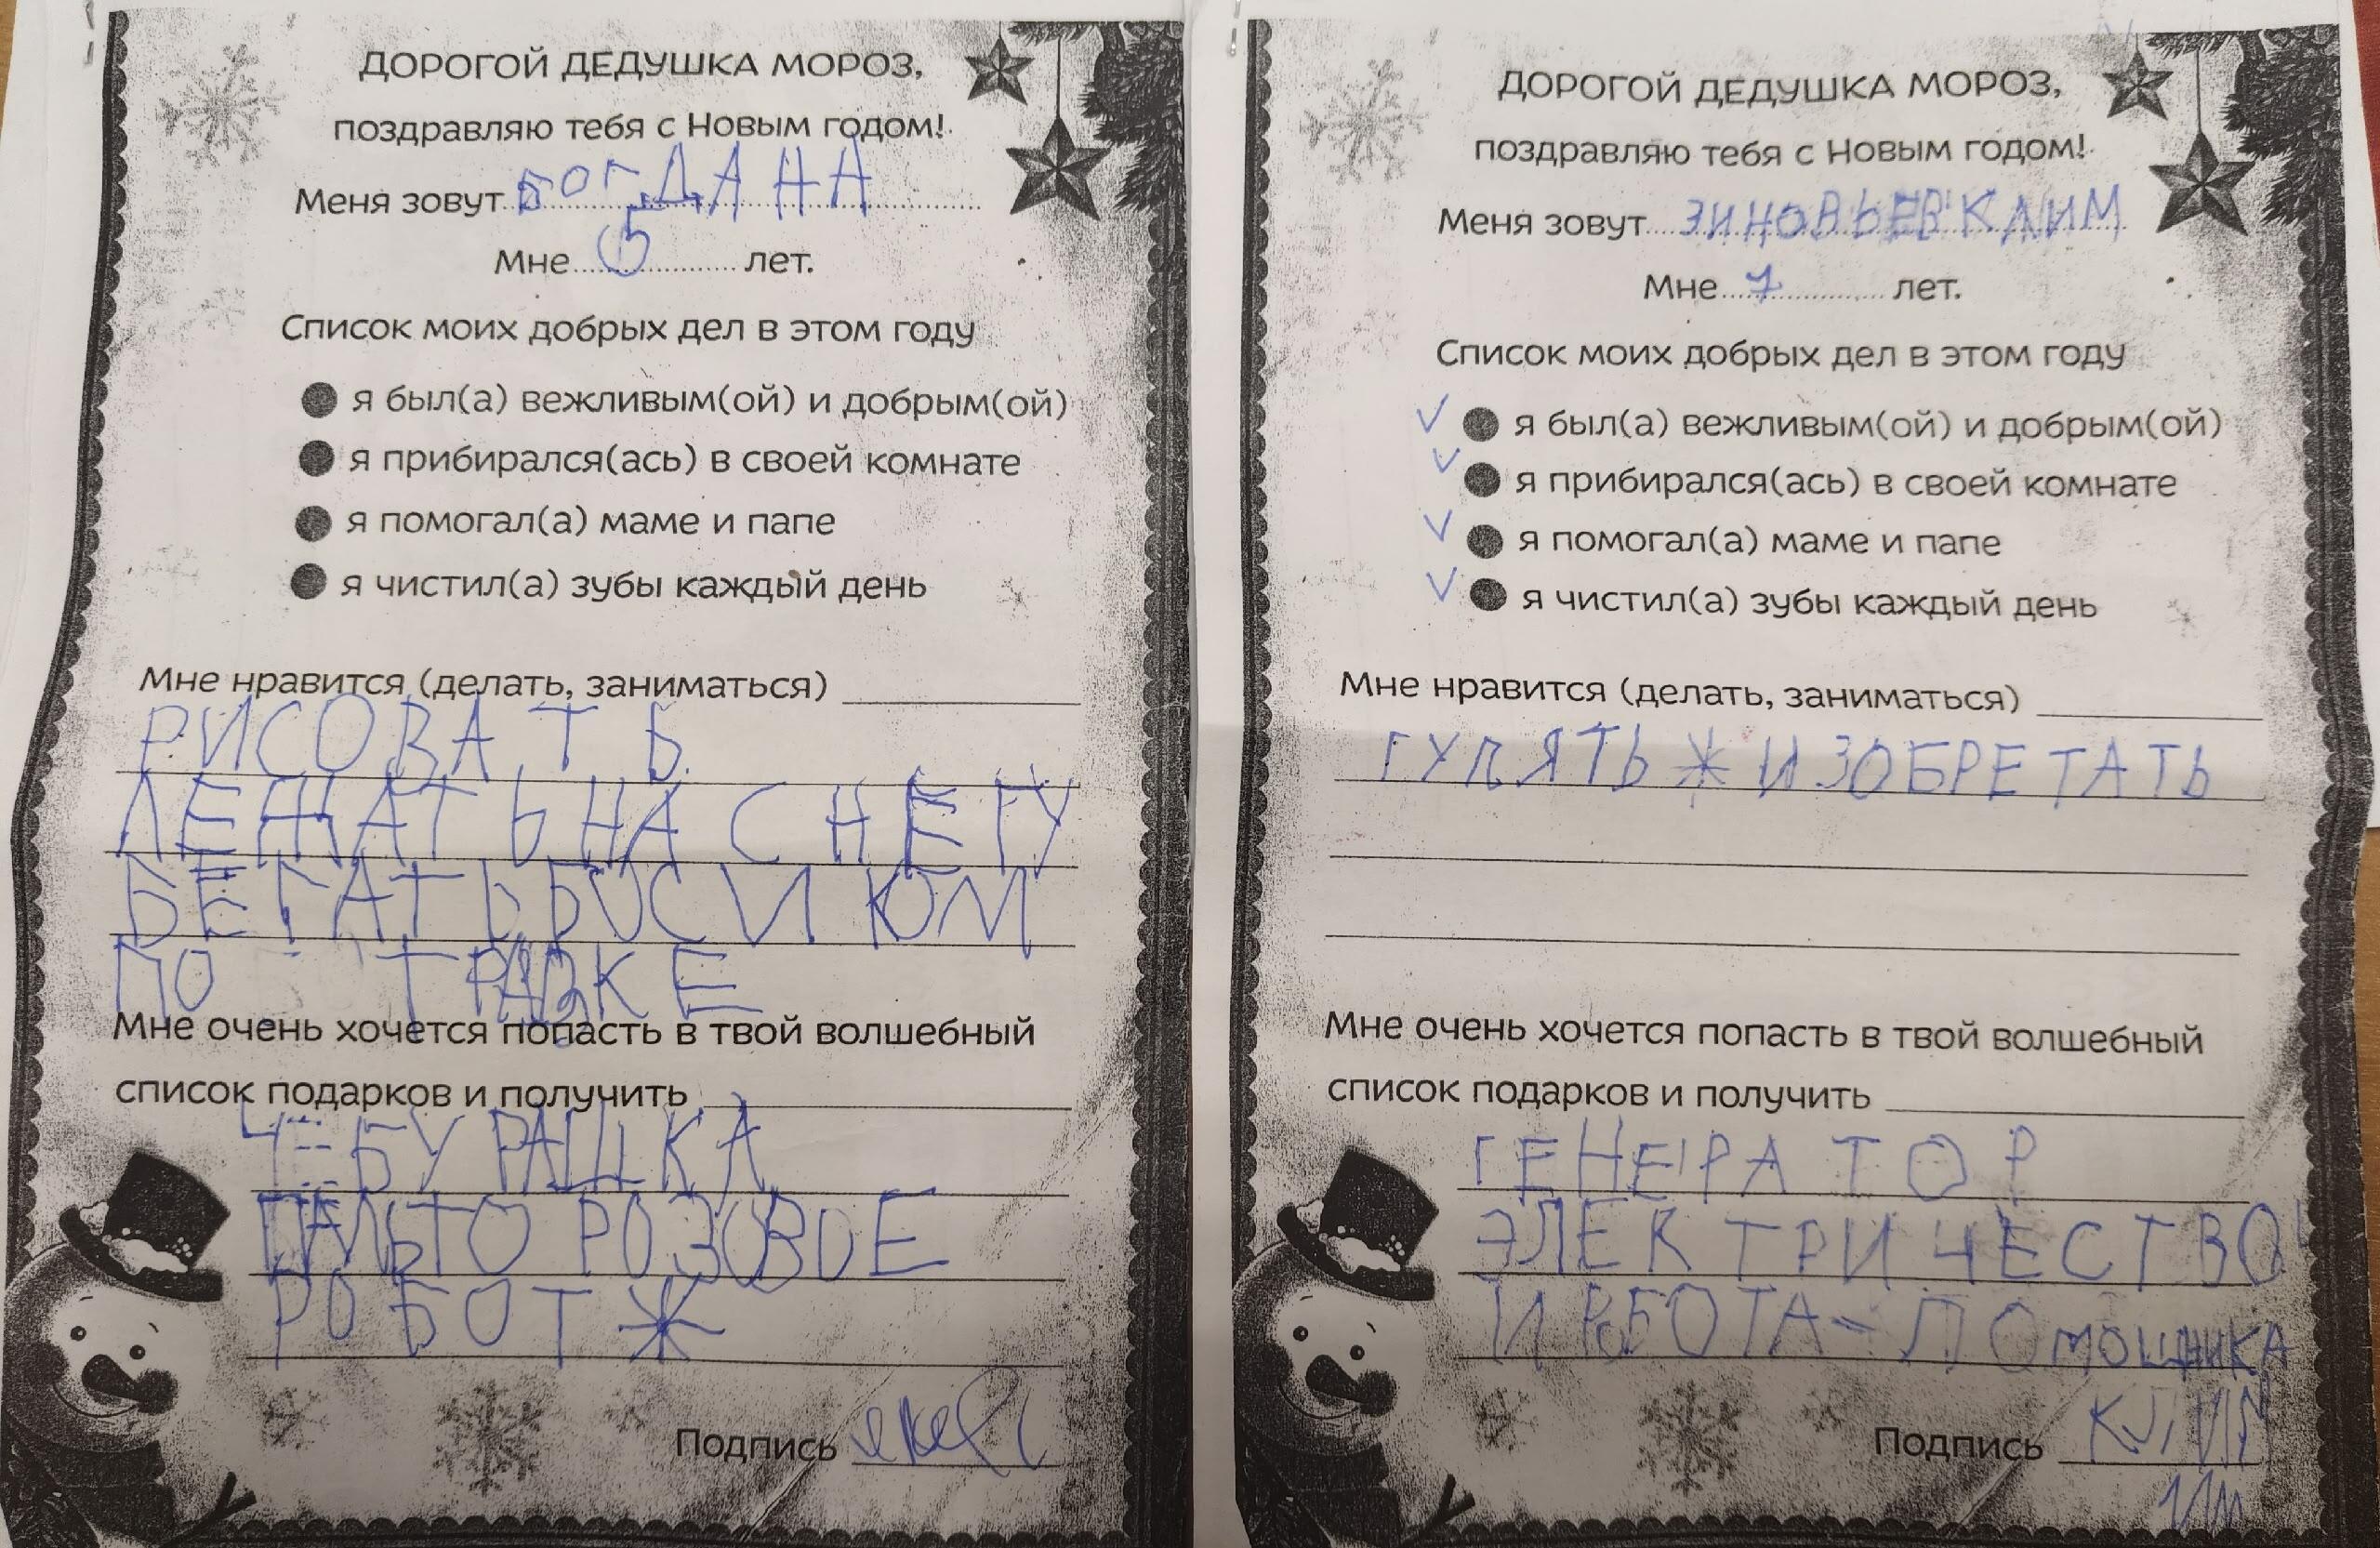 ДОРОГОЙ ДЕДУШКА МОРОЗ,
поздравляю тебя с Новым годом!
Меня зовут БОГДАНА
Мне 5 лет.
Список моих добрых дел в этом году
я был(а) вежливым(ой) и добрым(ой)
я прибирался(ась) в своей комнате
я помогал(а) маме и папе
я чистил(а) зубы каждый день
Мне нравится (делать, заниматься)
РИСОВАТЬ
ЛЕЖАТЬ НА СНЕГУ
БЕГАТЬ БОСИКОМ
ПО ТРАВКЕ
Мне очень хочется попасть в твой волшебный
список подарков и получить
ЧЕБУРАШКА
ПАЛЬТО РОЗОВОЕ
РОБОТ
Подпись
ДОРОГОЙ ДЕДУШКА МОРОЗ,
поздравляю тебя с Новым годом!
Меня зовут ЗИНОВЬЕВ КЛИМ
Мне 7 лет.
Список моих добрых дел в этом году
я был(а) вежливым(ой) и добрым(ой)
я прибирался(ась) в своей комнате
я помогал(а) маме и папе
я чистил(а) зубы каждый день
Мне нравится (делать, заниматься)
ГУЛЯТЬ ИЗОБРЕТАТЬ
Мне очень хочется попасть в твой волшебный
список подарков и получить
ГЕНЕРАТОР
ЭЛЕКТРИЧЕСТВО
И РОБОТА-ПОМОЩНИКА
Подпись